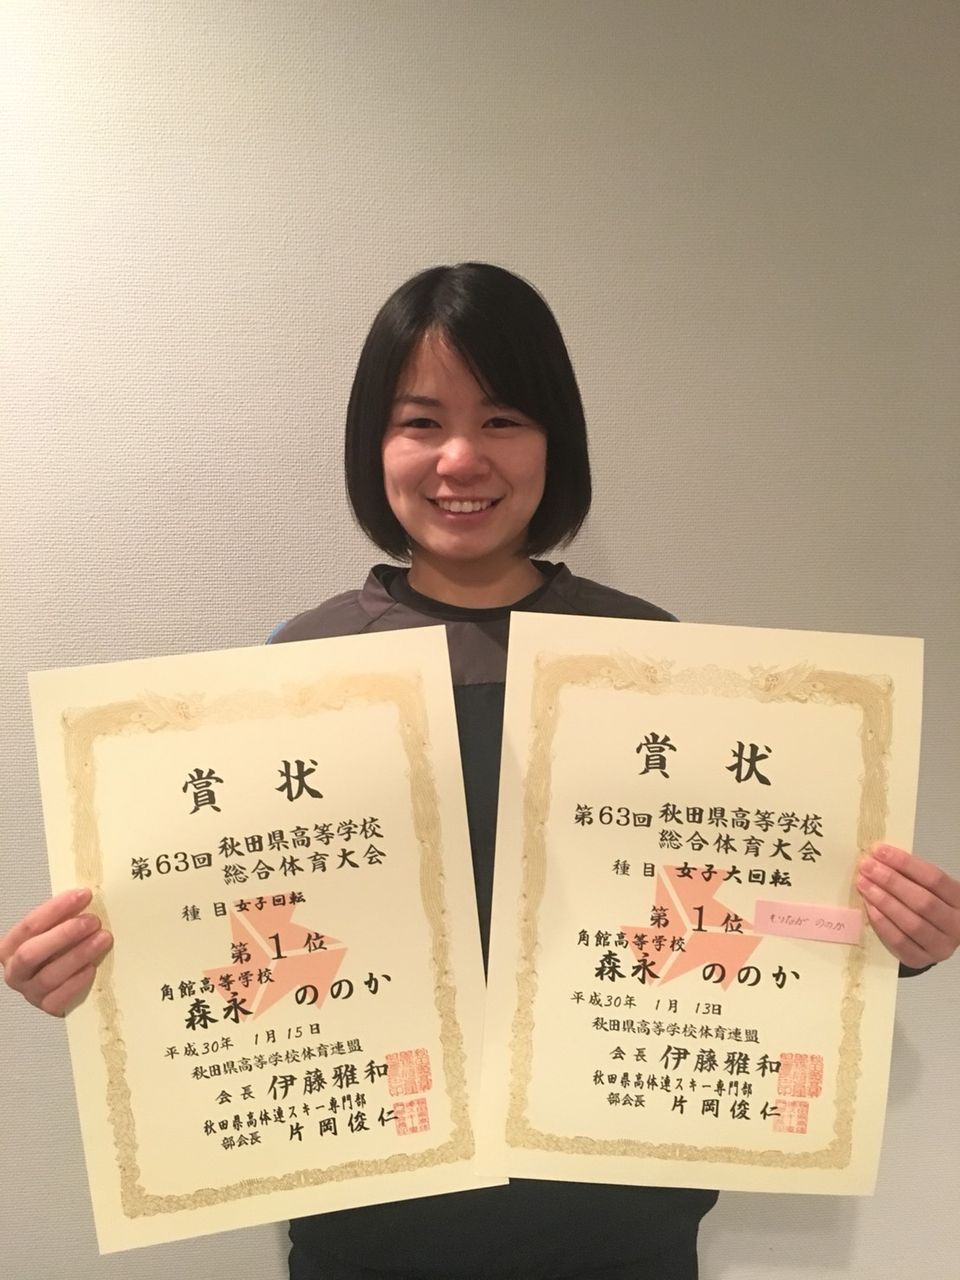 賞状
第63回 秋田県高等学校
総合体育大会
種目 女子回転
第1位
角館高等学校
森永 ののか
平成30年 1月 15日
秋田県高等学校体育連盟
会長 伊藤雅和
秋田県高体連スキー専門部
部会長 片岡俊仁
賞状
第63回 秋田県高等学校
総合体育大会
種目 女子大回転
第1位
もりなが ののか
角館高等学校
森永 ののか
平成30年 1月 13日
秋田県高等学校体育連盟
会長 伊藤雅和
秋田県高体連スキー専門部
部会長 片岡俊仁